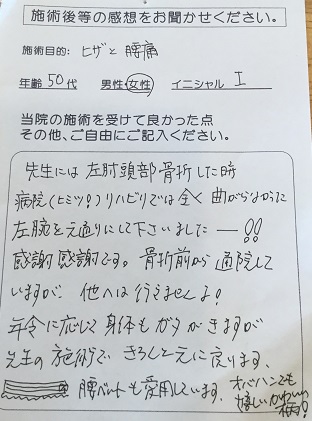 施術後等の感想をお聞かせください。
施術目的: ヒザと腰痛
年齢 50代 男性 女性 イニシャル I
当院の施術を受けて良かった点
その他、ご自由にご記入ください。
先生には 左肘頭部骨折した時
病院(ヒミツ!)リハビリでは全く曲がらなかった
左腕を元通りにして下さいました―!!
感謝感謝です。骨折前から通院して
いますが、他へは行えませんよ!
年令に応じて身体もガタがきますが
先生の施術で きちんと元に戻ります、
腰ベルトも愛用しています、オバハンでも
嬉しいかわいい
柄!